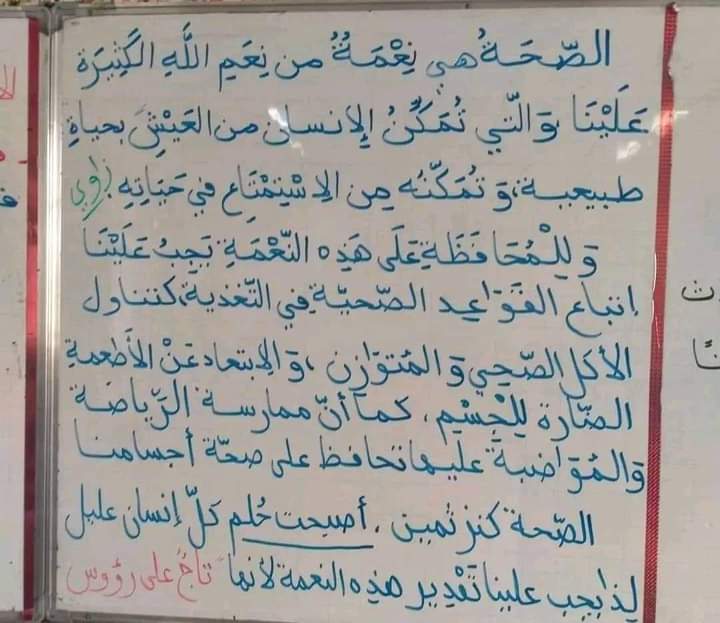 الصّحَةُ هي نِعْمَةٌ من نِعَمِ اللَّهِ الكَثِيرَة
عَلَيْنَا وَالّتي تُمَكِّنُ الإنسان من العَيْشَ بحياةٍ
طبيعية، وَتُمَكّنُه مِن الِاسْتِمْتَاع في حَيَاتِهِ.
وَلِلْمُحَافَظَةِ عَلَى هَذِه النّعْمَةِ يَجِبُ عَلَيْنَا
إتباع القَوَاعِد الصّحيّة في التّغذية، كتناول
الأكل الصّحِي وَالمُتَوَازِن، وَالابتعاد عَنْ الأَطعمة
الضّارة لِلْجِسْمِ، كما أنّ ممارسة الرّياضة
وَالمُوَاضبةَ عليها تحافظ على صحّة أجسامنا
الصّحة كنز ثمين، أصبحت حُلم كلّ إنسان عليل
لذا يجب علينا تَقْدِير هذه النعمة لأنها تاجٌ على رؤوس